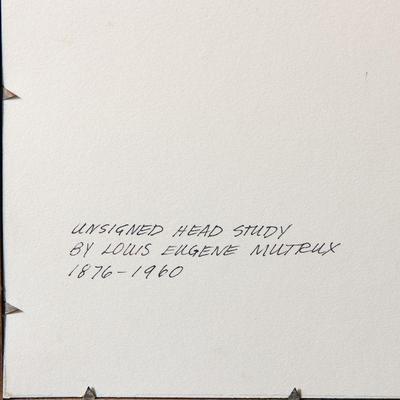 UNSIGNED HEAD STUDY
BY LOUIS EUGENE MUTRUX
1876-1960